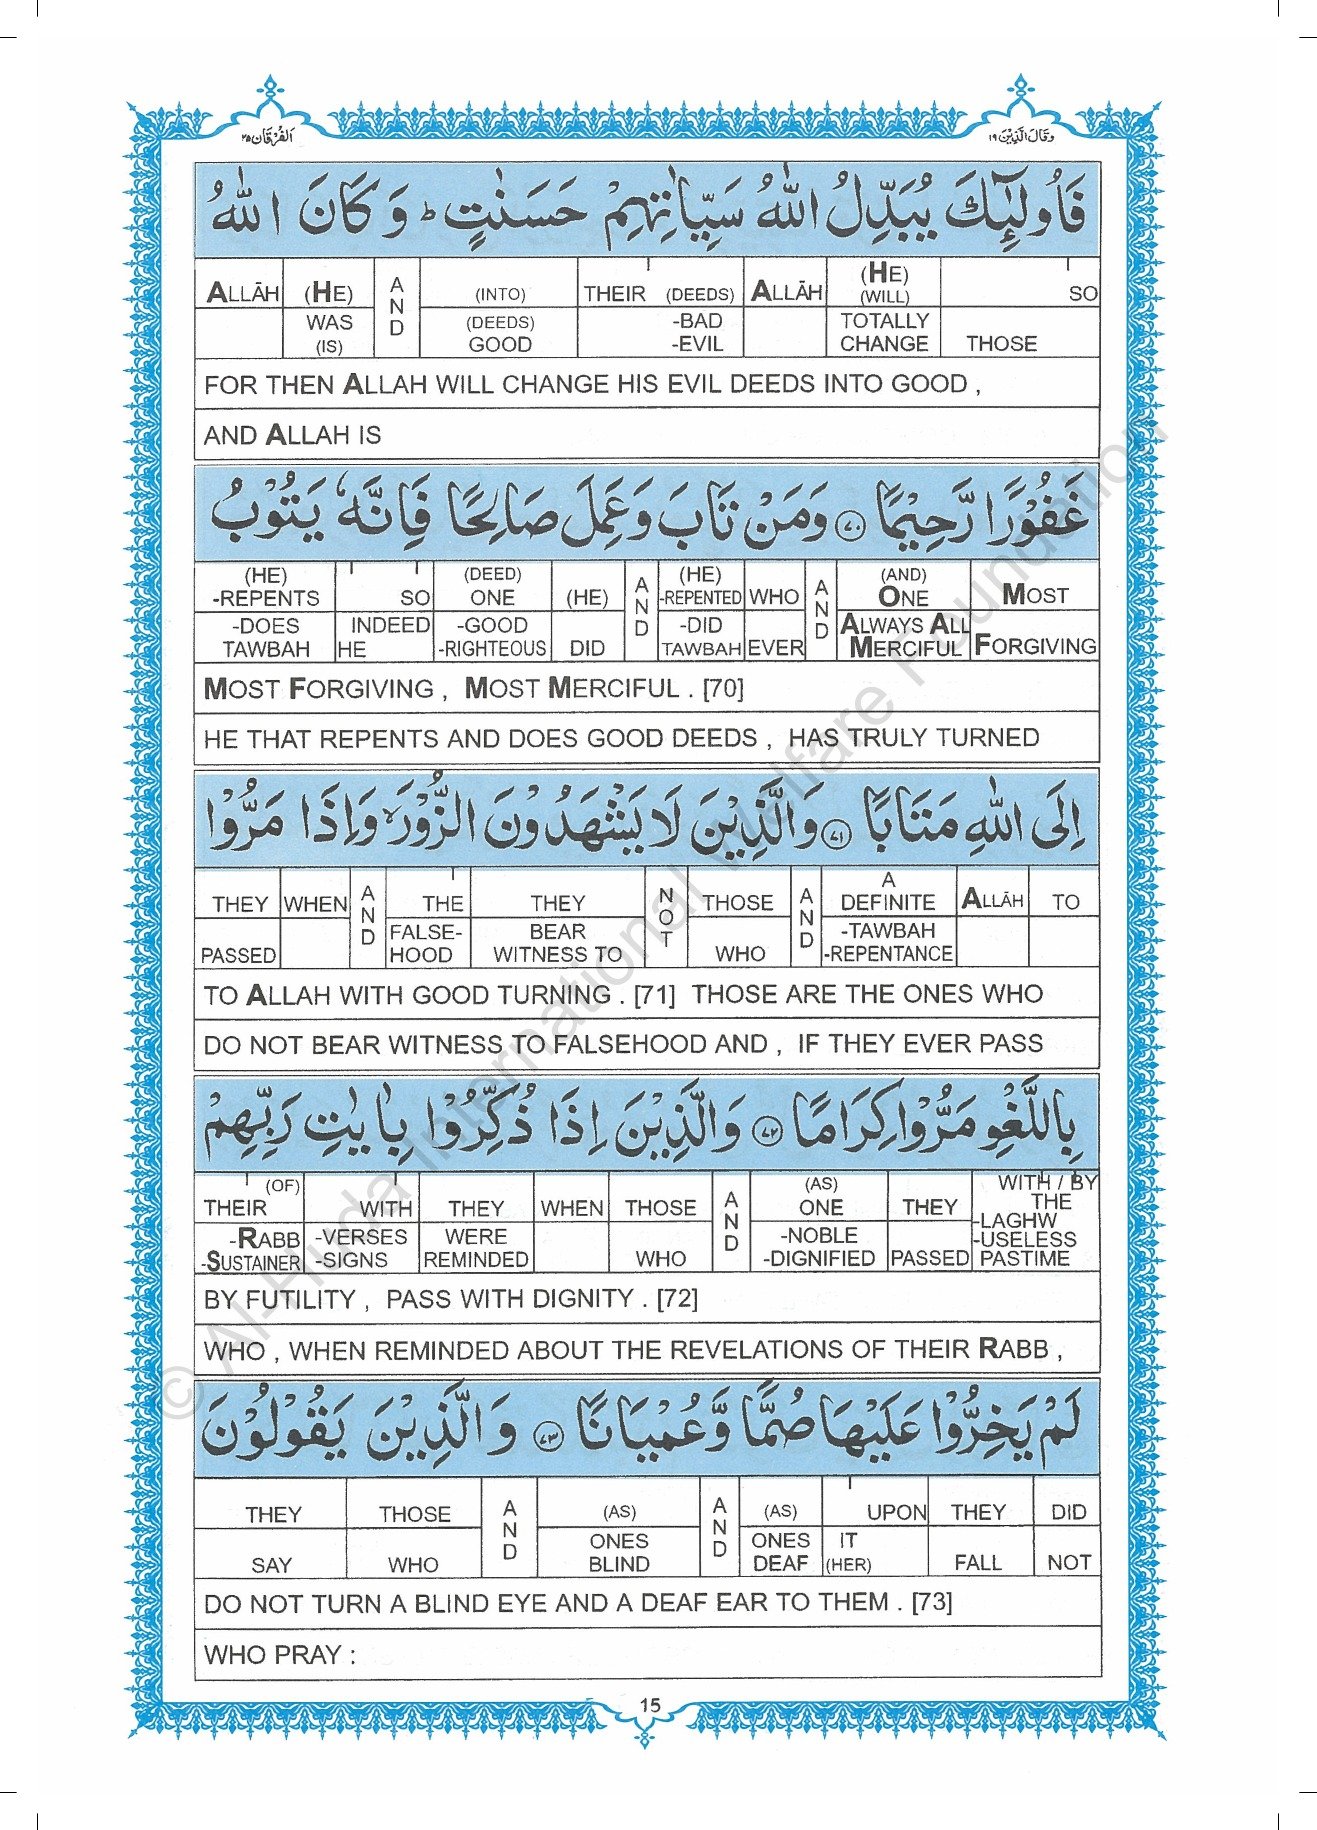 الفرقان ٢٥
وقال الذین ١٩
فَاُولٰٓئِكَ یُبَدِّلُ اللّٰهُ سَیِّاٰتِهِمْ حَسَنٰتٍ ؕ وَ كَانَ اللّٰهُ
ALLĀH (HE) AND (INTO) THEIR (DEEDS) ALLĀH (HE) (WILL) SO
WAS (IS) (DEEDS) GOOD -BAD -EVIL TOTALLY CHANGE THOSE
FOR THEN ALLAH WILL CHANGE HIS EVIL DEEDS INTO GOOD ,
AND ALLAH IS
غَفُوْرًا رَّحِیْمًا ﴿۷۰﴾ وَمَنْ تَابَ وَعَمِلَ صَالِحًا فَاِنَّهٗ یَتُوْبُ
(HE) -REPENTS SO (DEED) ONE (HE) AND (HE) -REPENTED WHO AND (AND) ONE MOST
-DOES TAWBAH INDEED HE -GOOD -RIGHTEOUS DID -DID TAWBAH EVER ALWAYS ALL MERCIFUL FORGIVING
MOST FORGIVING , MOST MERCIFUL . [70]
HE THAT REPENTS AND DOES GOOD DEEDS , HAS TRULY TURNED
اِلَی اللّٰهِ مَتَابًا ﴿۷۱﴾ وَالَّذِیْنَ لَا یَشْهَدُوْنَ الزُّوْرَ ۙ وَاِذَا مَرُّوْا
THEY WHEN AND THE THEY NOT THOSE AND A DEFINITE ALLĀH TO
PASSED FALSE-HOOD BEAR WITNESS TO WHO -TAWBAH -REPENTANCE
TO ALLAH WITH GOOD TURNING . [71] THOSE ARE THE ONES WHO
DO NOT BEAR WITNESS TO FALSEHOOD AND , IF THEY EVER PASS
بِاللَّغْوِ مَرُّوْا كِرَامًا ﴿۷۲﴾ وَالَّذِیْنَ اِذَا ذُكِّرُوْا بِاٰیٰتِ رَبِّهِمْ
(OF) THEIR WITH THEY WHEN THOSE AND (AS) ONE THEY WITH / BY THE
-RABB -SUSTAINER -VERSES -SIGNS WERE REMINDED WHO -NOBLE -DIGNIFIED PASSED -LAGHW -USELESS PASTIME
BY FUTILITY , PASS WITH DIGNITY . [72]
WHO , WHEN REMINDED ABOUT THE REVELATIONS OF THEIR RABB ,
لَمْ یَخِرُّوْا عَلَیْهَا صُمًّا وَّعُمْیَانًا ﴿۷۳﴾ وَ الَّذِیْنَ یَقُوْلُوْنَ
THEY THOSE AND (AS) AND (AS) UPON THEY DID
SAY WHO ONES BLIND ONES DEAF IT (HER) FALL NOT
DO NOT TURN A BLIND EYE AND A DEAF EAR TO THEM . [73]
WHO PRAY :
15
© Al-Huda International Welfare Foundation